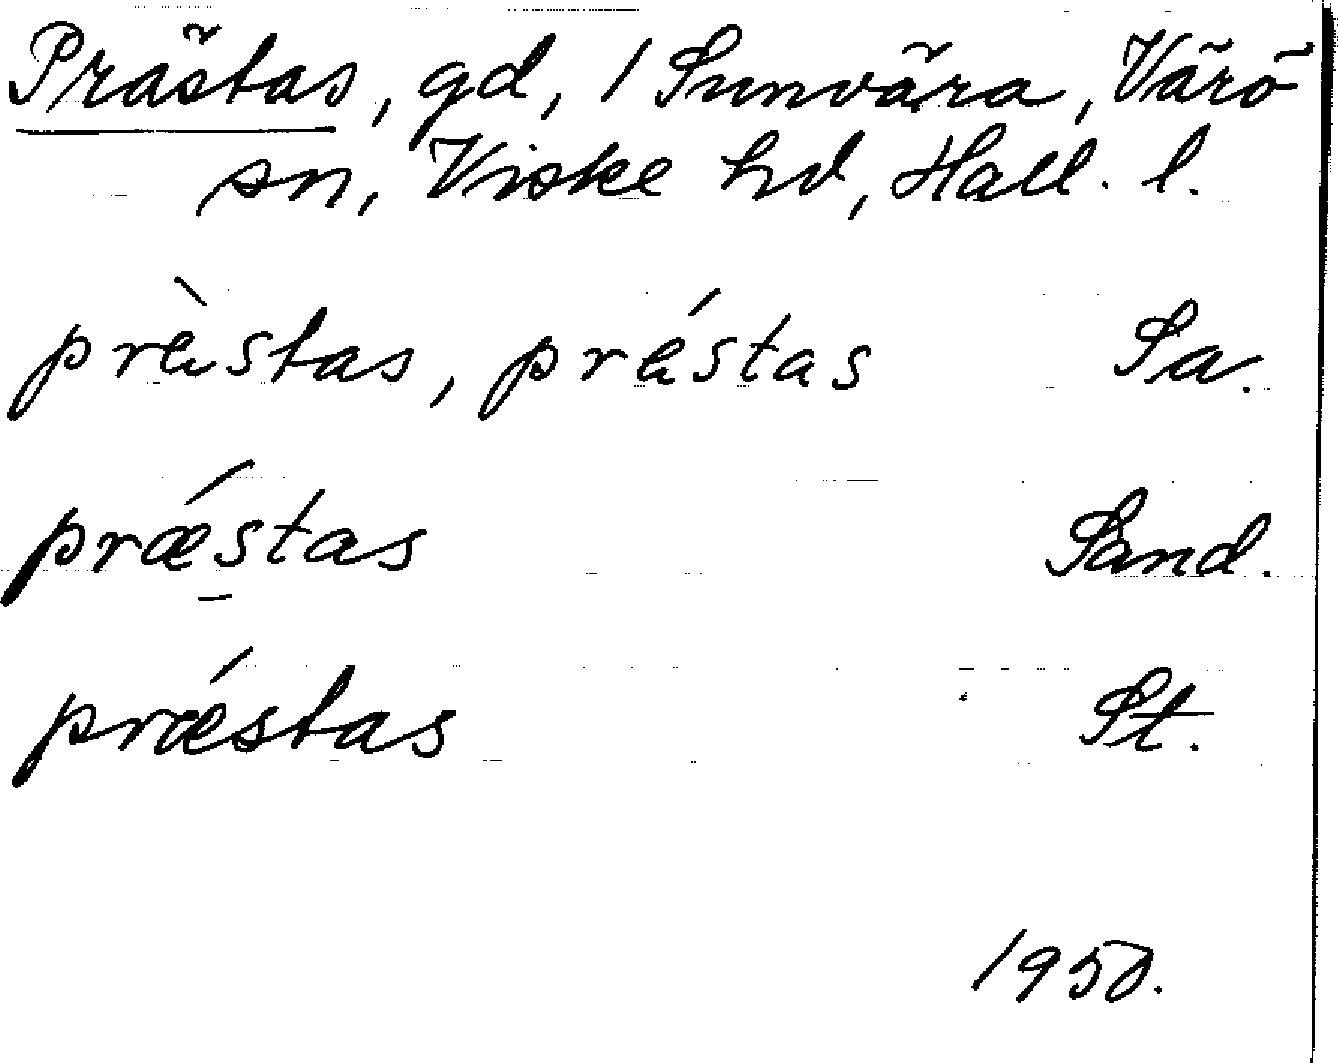 Prästas, gd, 1 Sunvära, Värö
sn, Viske hd, Hall. l.
præ̀stas, prǽstas Sa.
prǽstas Sand.
prǽstas St.
1950.